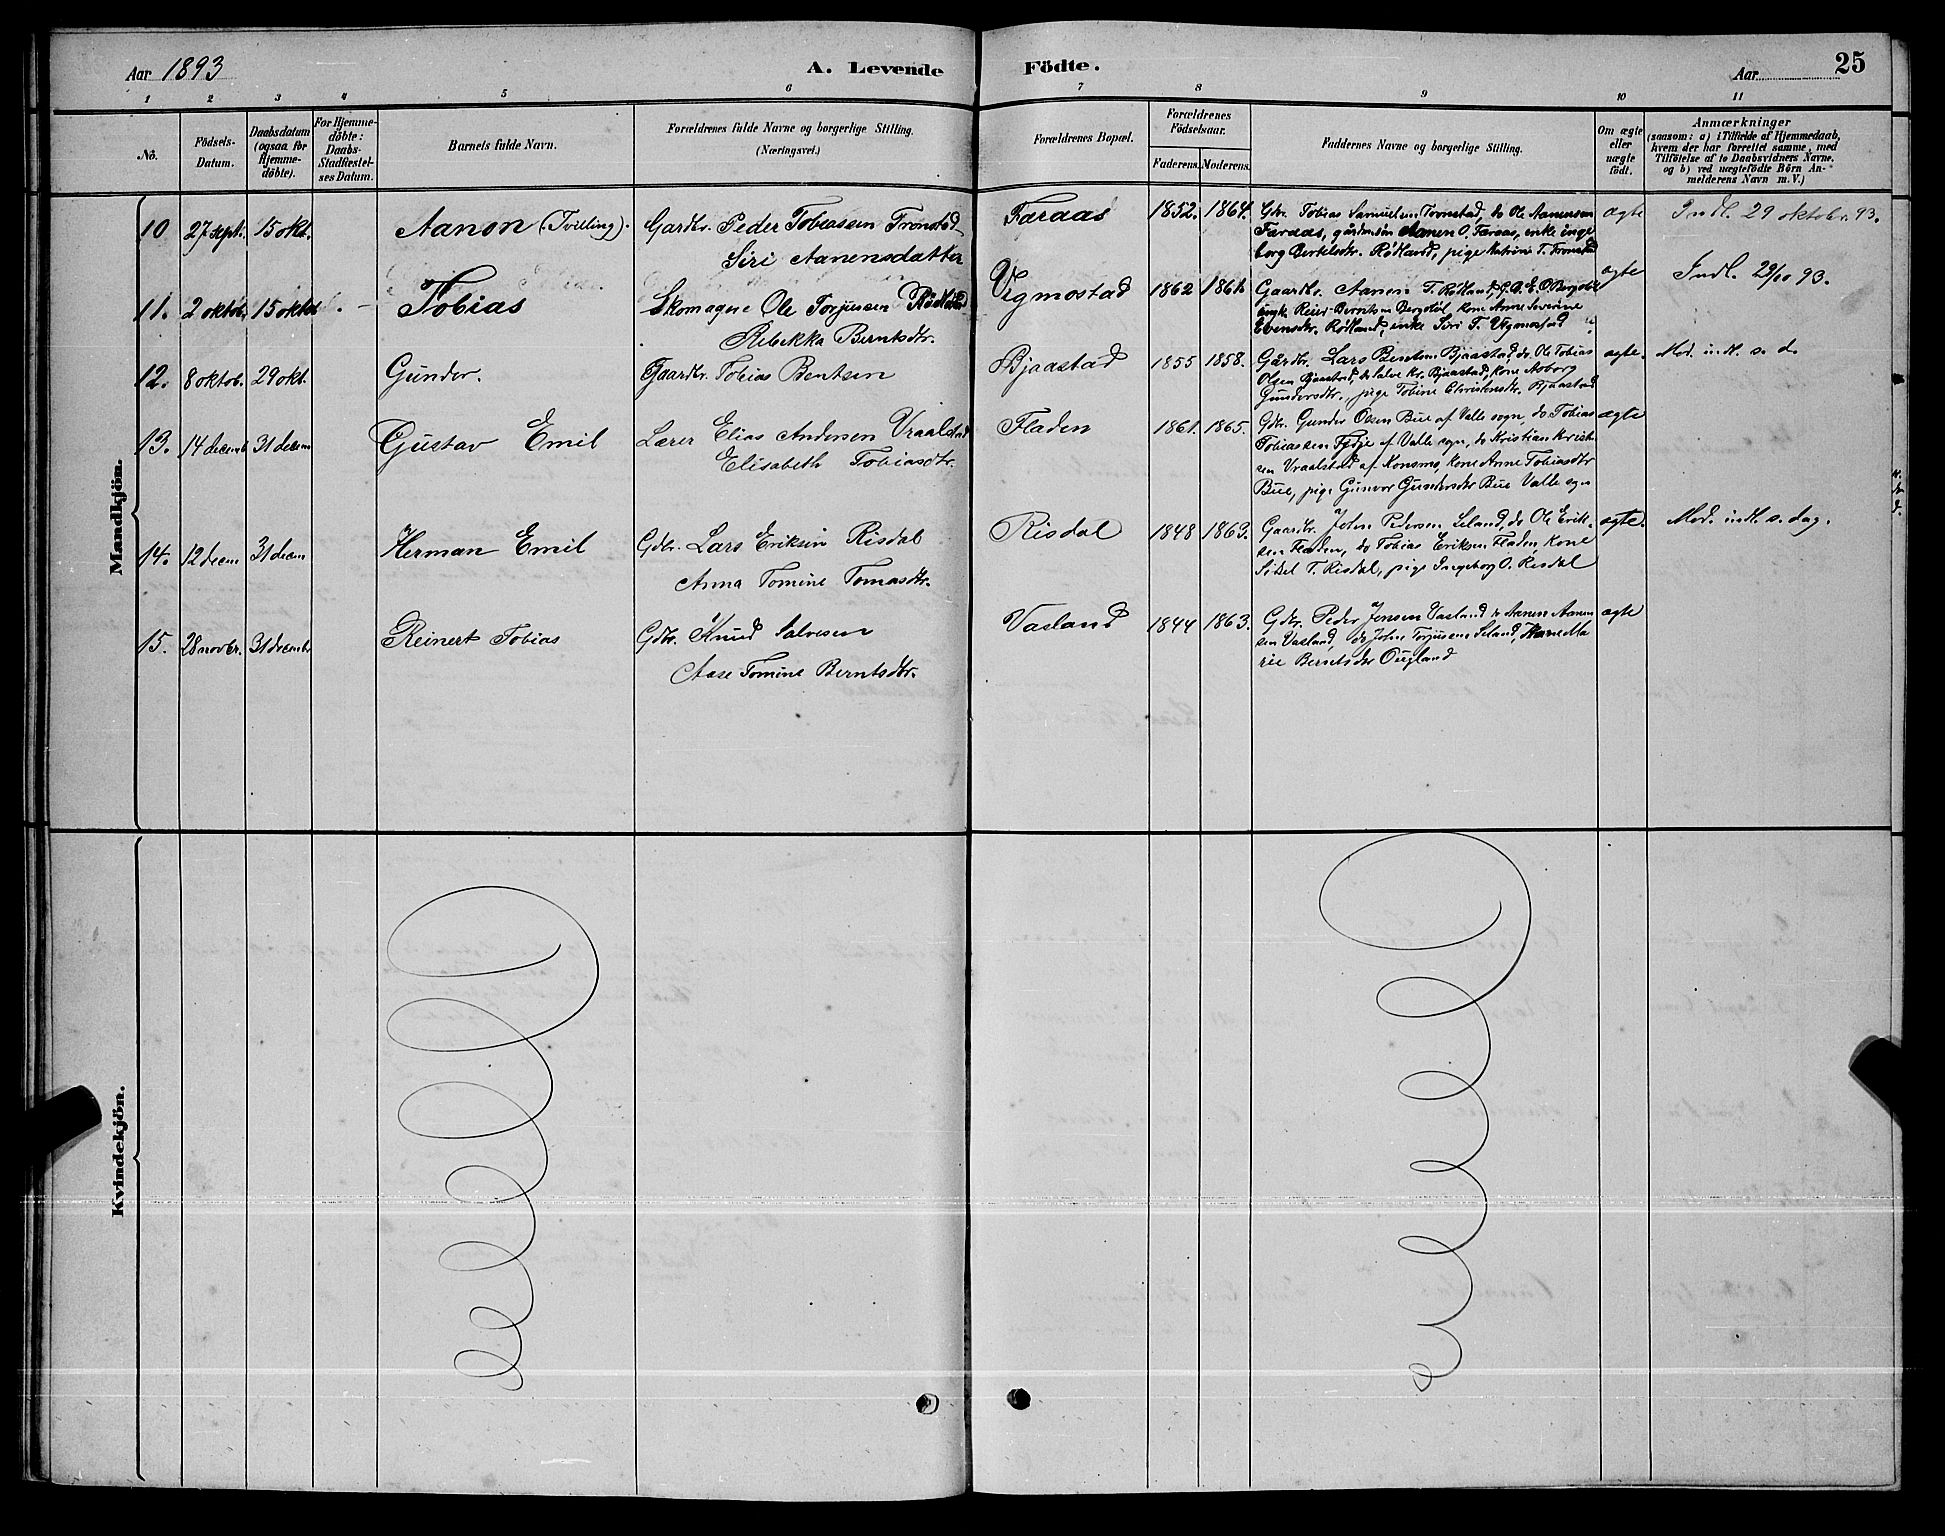 Aar 1893
A. Levende
Födte.
Aar
25
1 2 3 4 5 6 7 8 9 10 11
No.
Födsels-Datum.
Daabsdatum (ogsaa for Hjemmedöbte).
For Hjemmedöbte: Daabs-Stadfæstelses Datum.
Barnets fulde Navn.
Forældrenes fulde Navne og borgerlige Stilling.
(Næringsvei.)
Forældrenes Bopæl.
Forældrenes Födselsaar.
Faderens. Moderens.
Faddernes Navne og borgerlige Stilling.
Om ægte eller uægte födt.
Anmærkninger
(saasom: a) i Tilfælde af Hjemmedaab,
hvem der har forrettet samme, med
Tilföielse af to Daabsvidners Navne.
og b) ved uægtefödte Börn An-
melderens Navn m. V.)
Mandkjön.
10 27 sept. 15 okt. Aanon (Tvilling). Gardbr. Peder Tobiassen Tronstad
Siri Aanensdatter
Faraas 1852. 1864.
Gdr. Tobias Samuelsen Tronstad, do Ole Aanensen
Faraas, gårdmån Aanen O. Faraas, enke Inge
borg Bertelsdtr. Rödland, pige Katrine T. Tronstad
ægte Indl. 29 oktobr. 93.
11. 2 oktob. 15 oktob - Tobias Skomager Ole Torjussen Rödland
Rebekka Berntsdtr.
Vigmostad 1862 1861
Gaardbr. Aanen T. Rödland, E. O. Bergstøl
ungk. Reier Berntsen Bergstøl, kone Anne Severine
Evensdtr. Rödland, enke Siri T. Vigmostad
ægte Indl. 29/10 93.
12. 8 oktob. 29 okt. Gunder. Gaardbr. Tobias Bentsen
Bjaastad 1855 1858.
Gårdbr. Lars Bentsen Bjaastad, do Ole Tobias
Olsen Bjaastad, do Salve Kr. Bjaastad, kone Aaborg
Gundersdtr., pige Tobine Christensdtr. Bjaastad
ægte. Mod. indl. s. d.
13. 14 decemb 31 decem Gustav Emil Lærer Elias Andersen Vraalstad
Elisabeth Tobiasdtr.
Fladen 1861. 1865.
Gdr. Gunder Olsen Bue af Valle sogn, do Tobias
Tobiassen Fydje af Valle sogn, do Kristian Krist-
sen Vraalstad af Konsmo, kone Anne Tobiasdtr
Bue, pige Gunvor Gundersdtr Bue Valle sogn
ægte
14. 12 decem 31 decem Herman Emil Gdbr. Lars Eriksen Risdal
Anna Tomine Tomasdtr.
Risdal 1848 1863.
Gaardbr. John Pedersen Leland, do Ole Erik-
sen Fladen, do Tobias Eriksen Fladen, kone
Sibel T. Risdal, pige Ingeborg O. Risdal
ægte. Mod. indl. s. dag.
15. 28 novbr. 31 decembr Reinert Tobias Gdbr. Knud Salvesen
Aase Tomine Berntsdtr.
Vasland 1844 1863.
Gdbr. Peder Jensen Vasland do Aanen Aanen
sen Vasland, do John Torjusen Leland, Karen Ma
rie Berntsdtr Ougland
ægte
Kvindekjön.